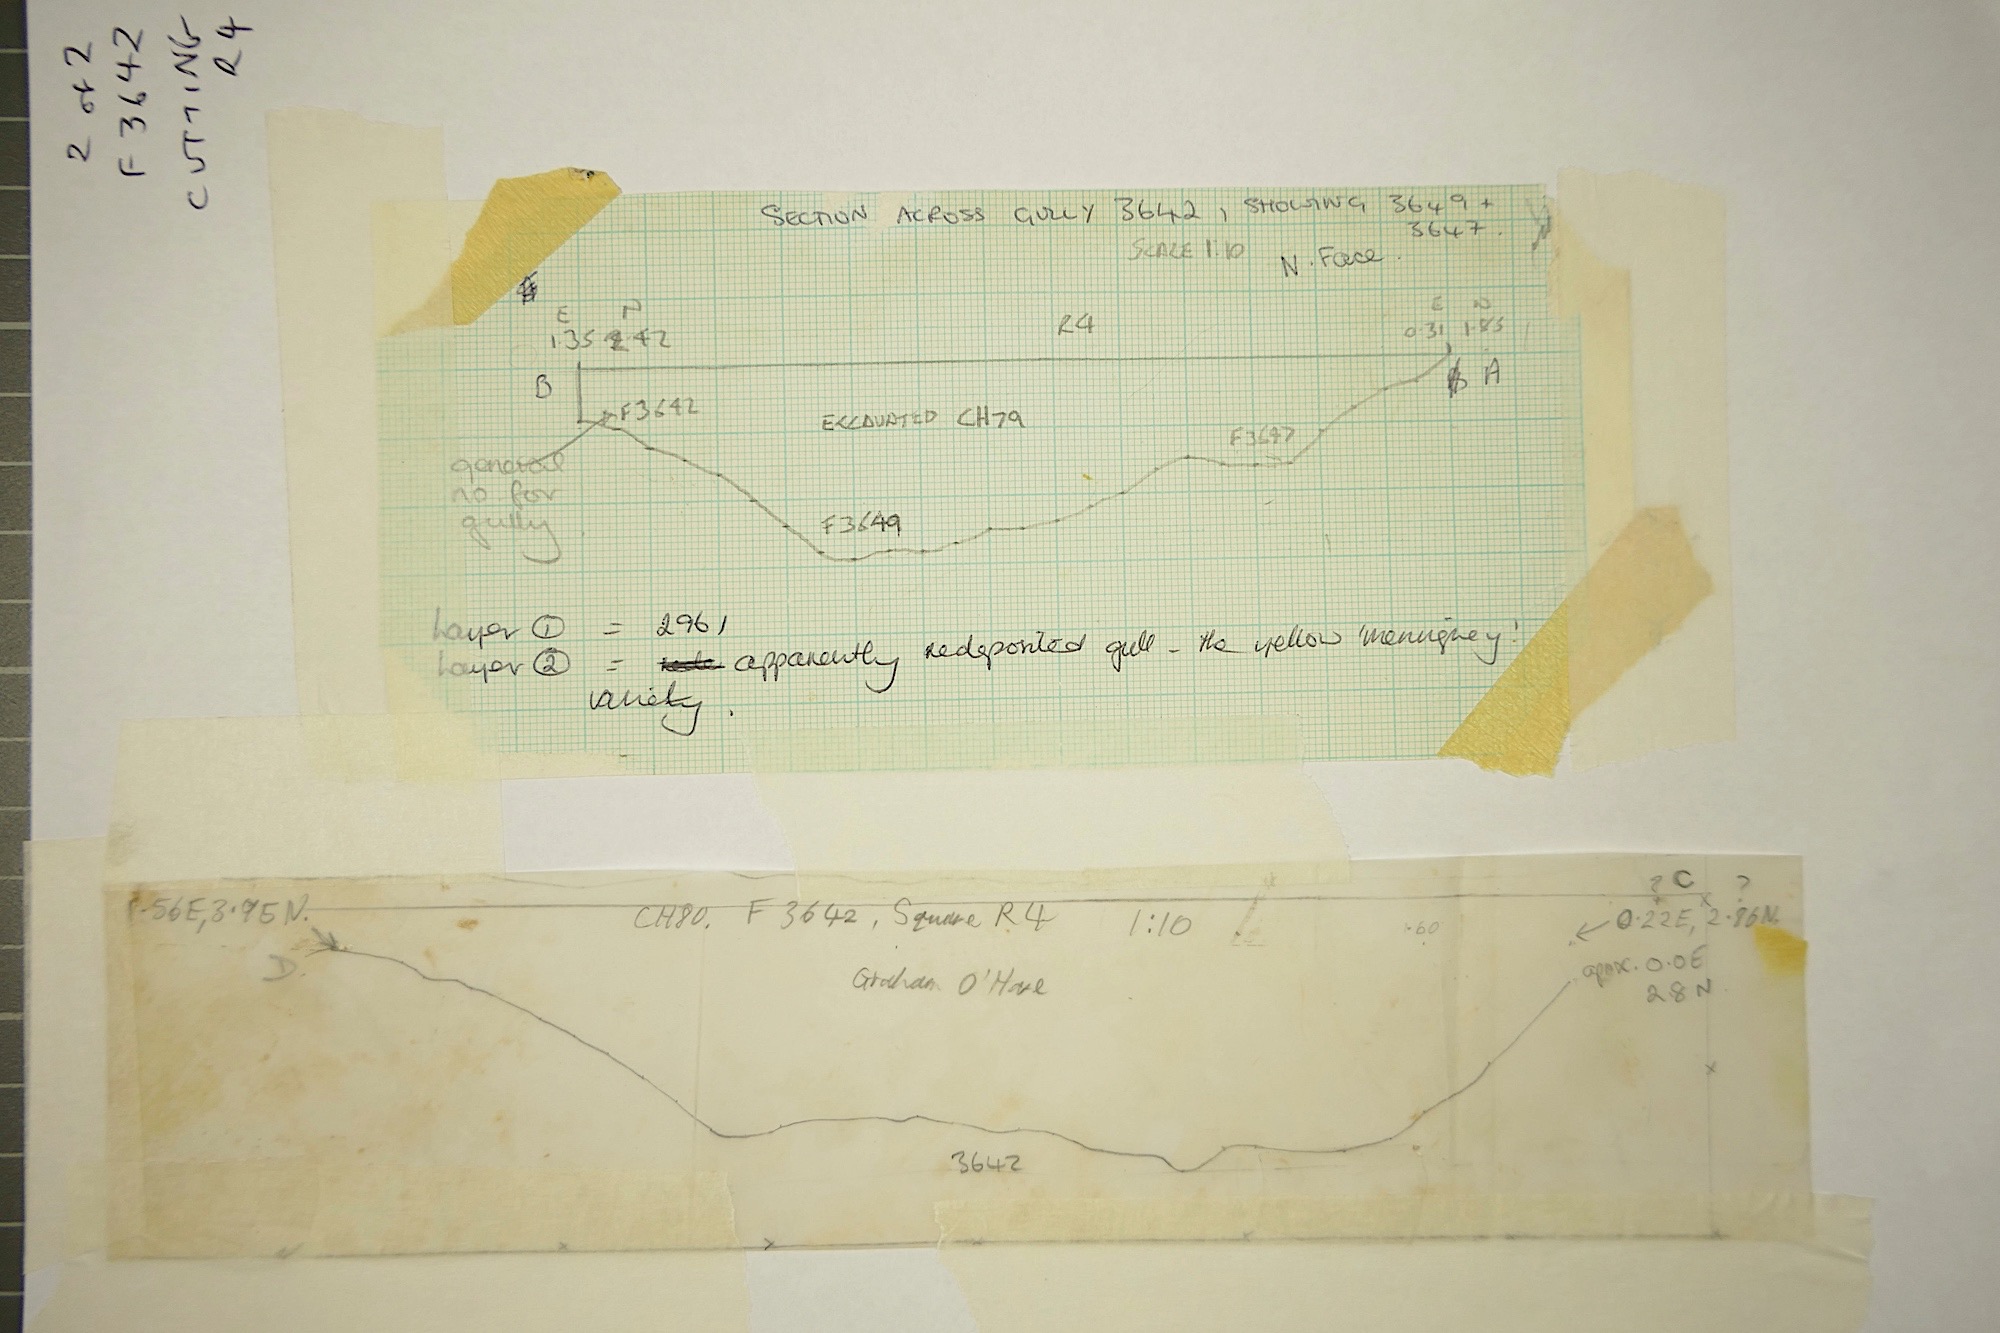 2 of 2
F 3642
CUTTING
R4
SECTION ACROSS GULLY 3642, SHOWING 3649 +
3647.
SCALE 1:10
N. Face.
E N
1.35 2.42
R4
E N
0.31 1.85
B
A
F3642
EXCAVATED CH79
F3647
general
no for
gully
F3649
Layer ① = 2961
Layer ② = apparently redeposited gull - the yellow
variety.
1.56E, 3.95N.
CH80. F 3642, Square R4 1:10
? C ?
0.22E, 2.86N.
1.60
D.
Graham O'Hare
aprx. 0.0E
2.8N
3642